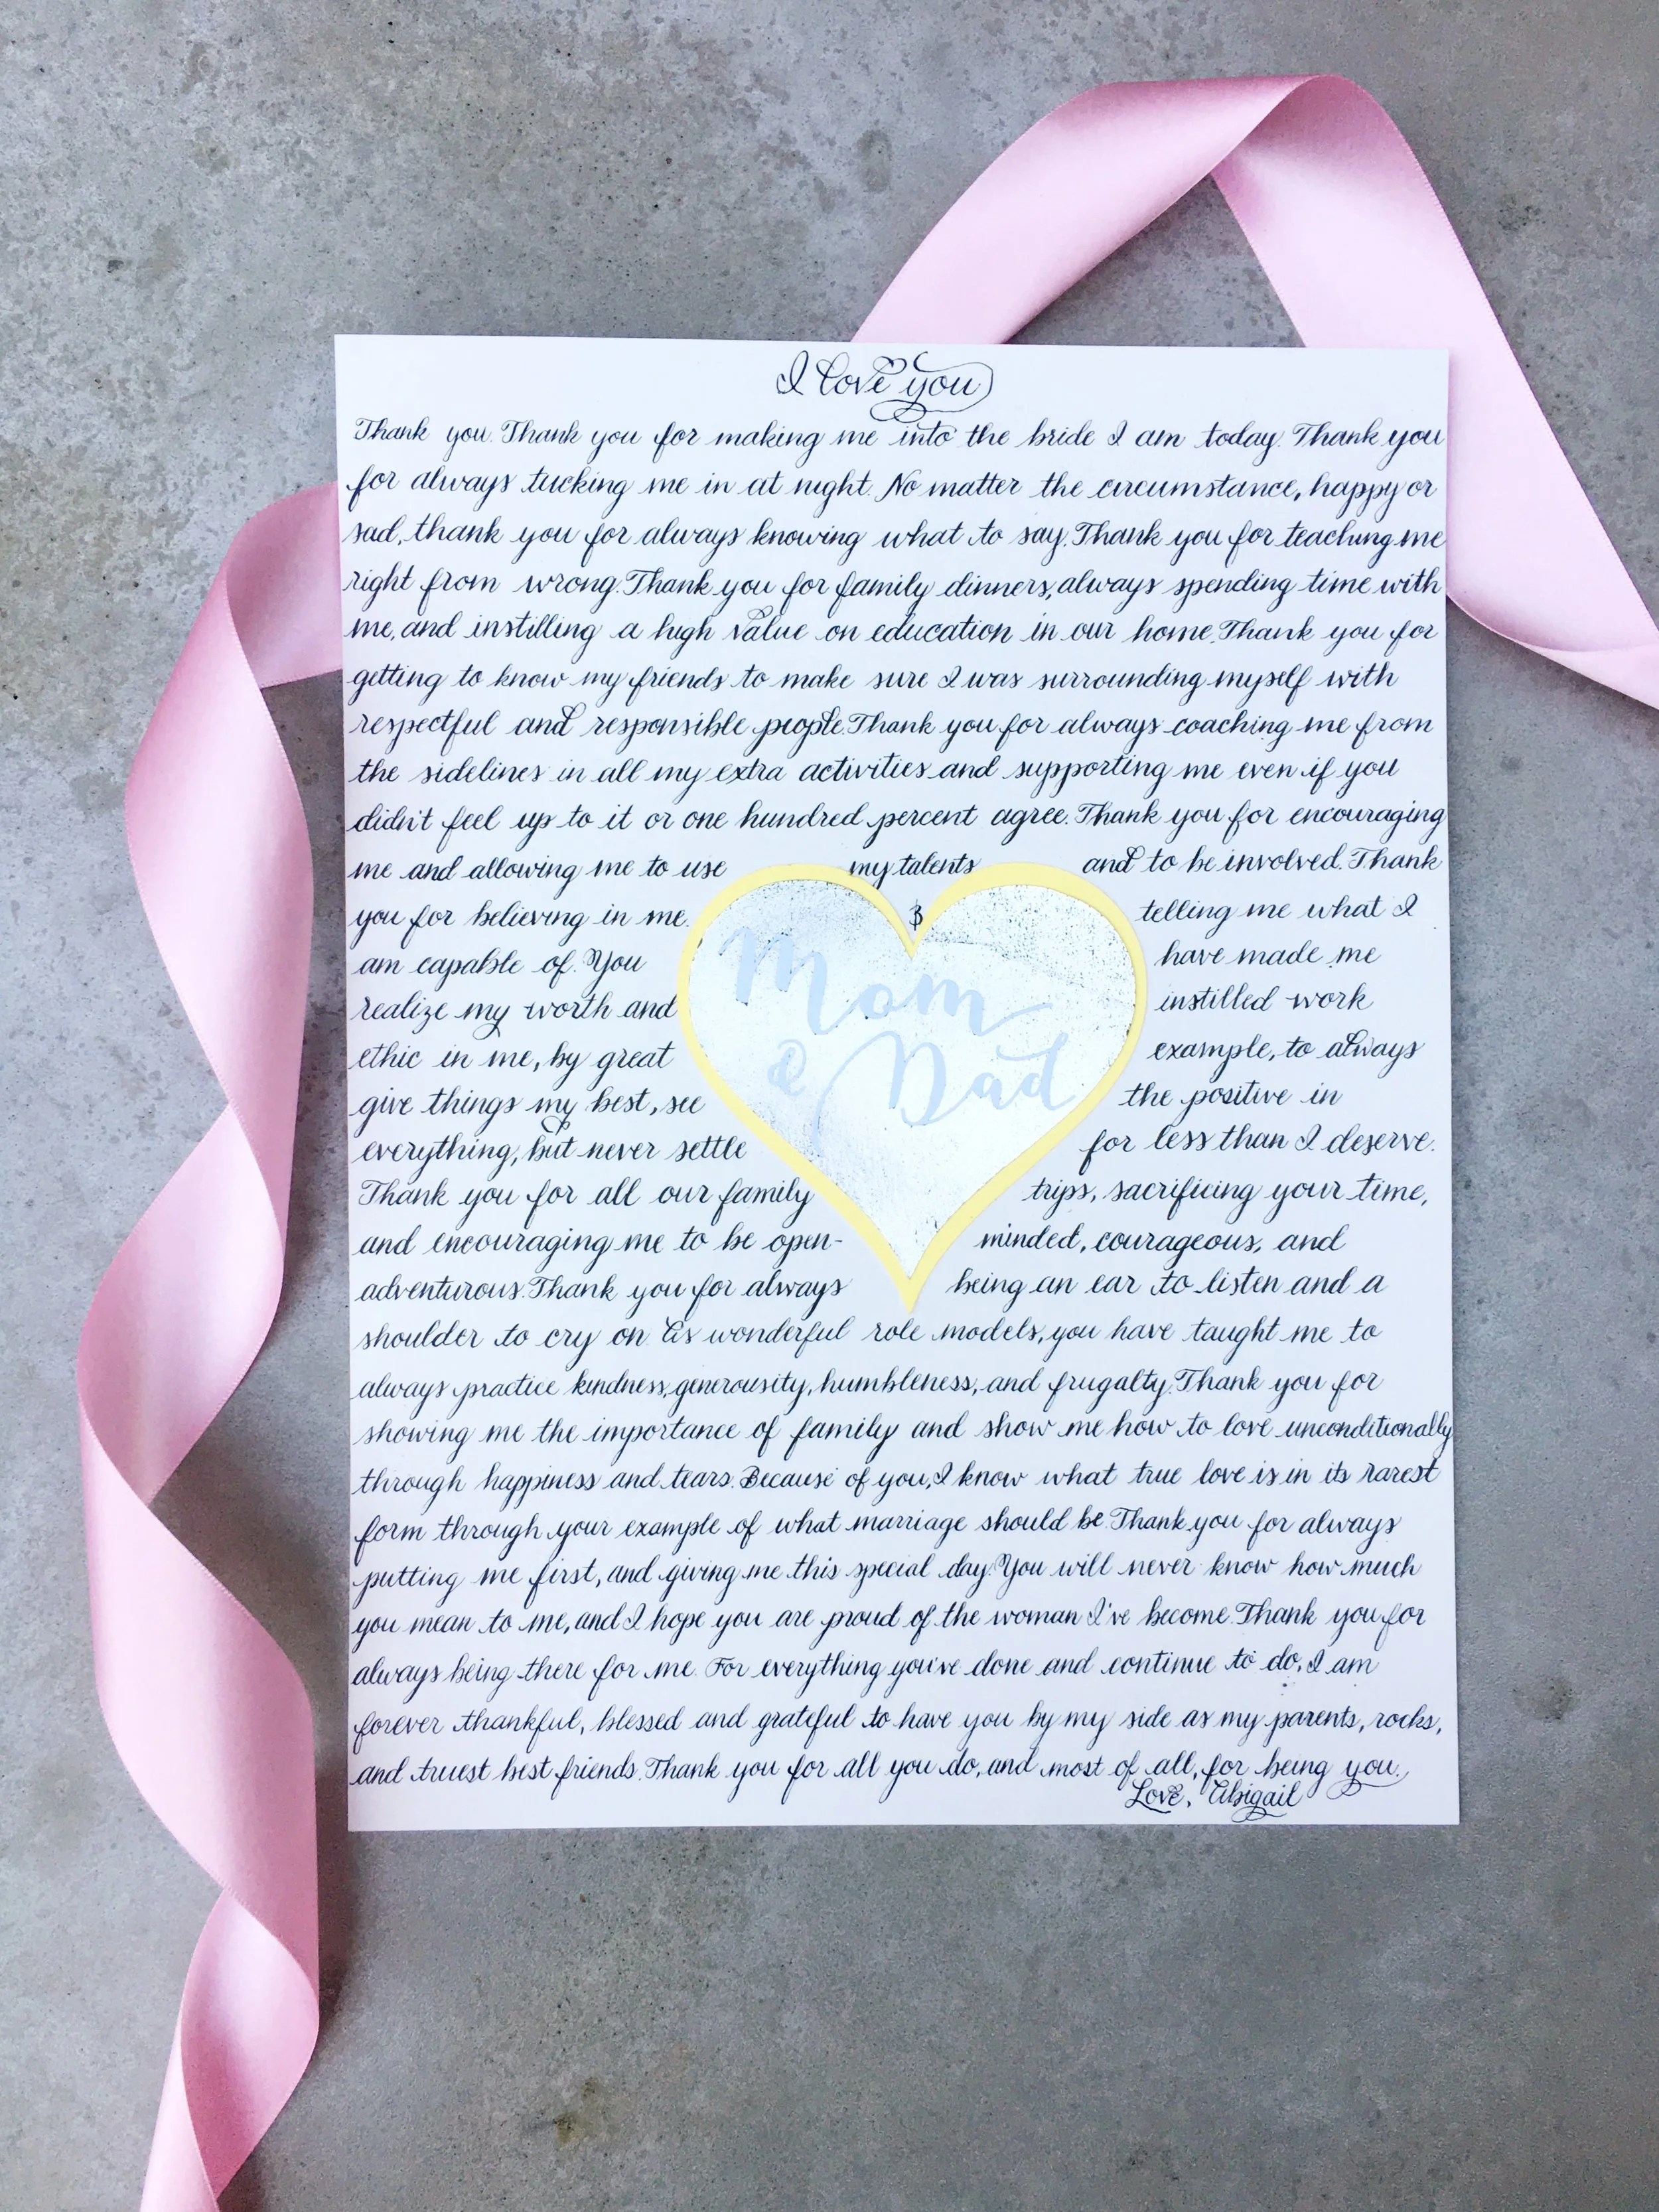 I love you
Thank you. Thank you for making me into the bride I am today. Thank you
for always tucking me in at night. No matter the circumstance, happy or
sad, thank you for always knowing what to say. Thank you for teaching me
right from wrong. Thank you for family dinners, always spending time with
me, and instilling a high value on education in our home. Thank you for
getting to know my friends to make sure I was surrounding myself with
respectful and responsible people. Thank you for always coaching me from
the sidelines in all my extra activities and supporting me even if you
didn't feel up to it or one hundred percent agree. Thank you for encouraging
me and allowing me to use my talents and to be involved. Thank
you for believing in me. & telling me what I
am capable of. You have made me
realize my worth and instilled work
ethic in me, by great example, to always
give things my best, see the positive in
everything, but never settle for less than I deserve.
Thank you for all our family trips, sacrificing your time,
and encouraging me to be open- minded, courageous, and
adventurous. Thank you for always being an ear to listen and a
shoulder to cry on. As wonderful role models, you have taught me to
always practice kindness, generousity, humbleness, and frugalty. Thank you for
showing me the importance of family and show me how to love unconditionally
through happiness and tears. Because of you, I know what true love is in its rarest
form through your example of what marriage should be. Thank you for always
putting me first, and giving me this special day. You will never know how much
you mean to me, and I hope you are proud of the woman I've become. Thank you for
always being there for me. For everything you've done and continue to do, I am
forever thankful, blessed and grateful to have you by my side as my parents, rocks,
and truest best friends. Thank you for all you do, and most of all, for being you.
Love, Abigail
Mom
& Dad